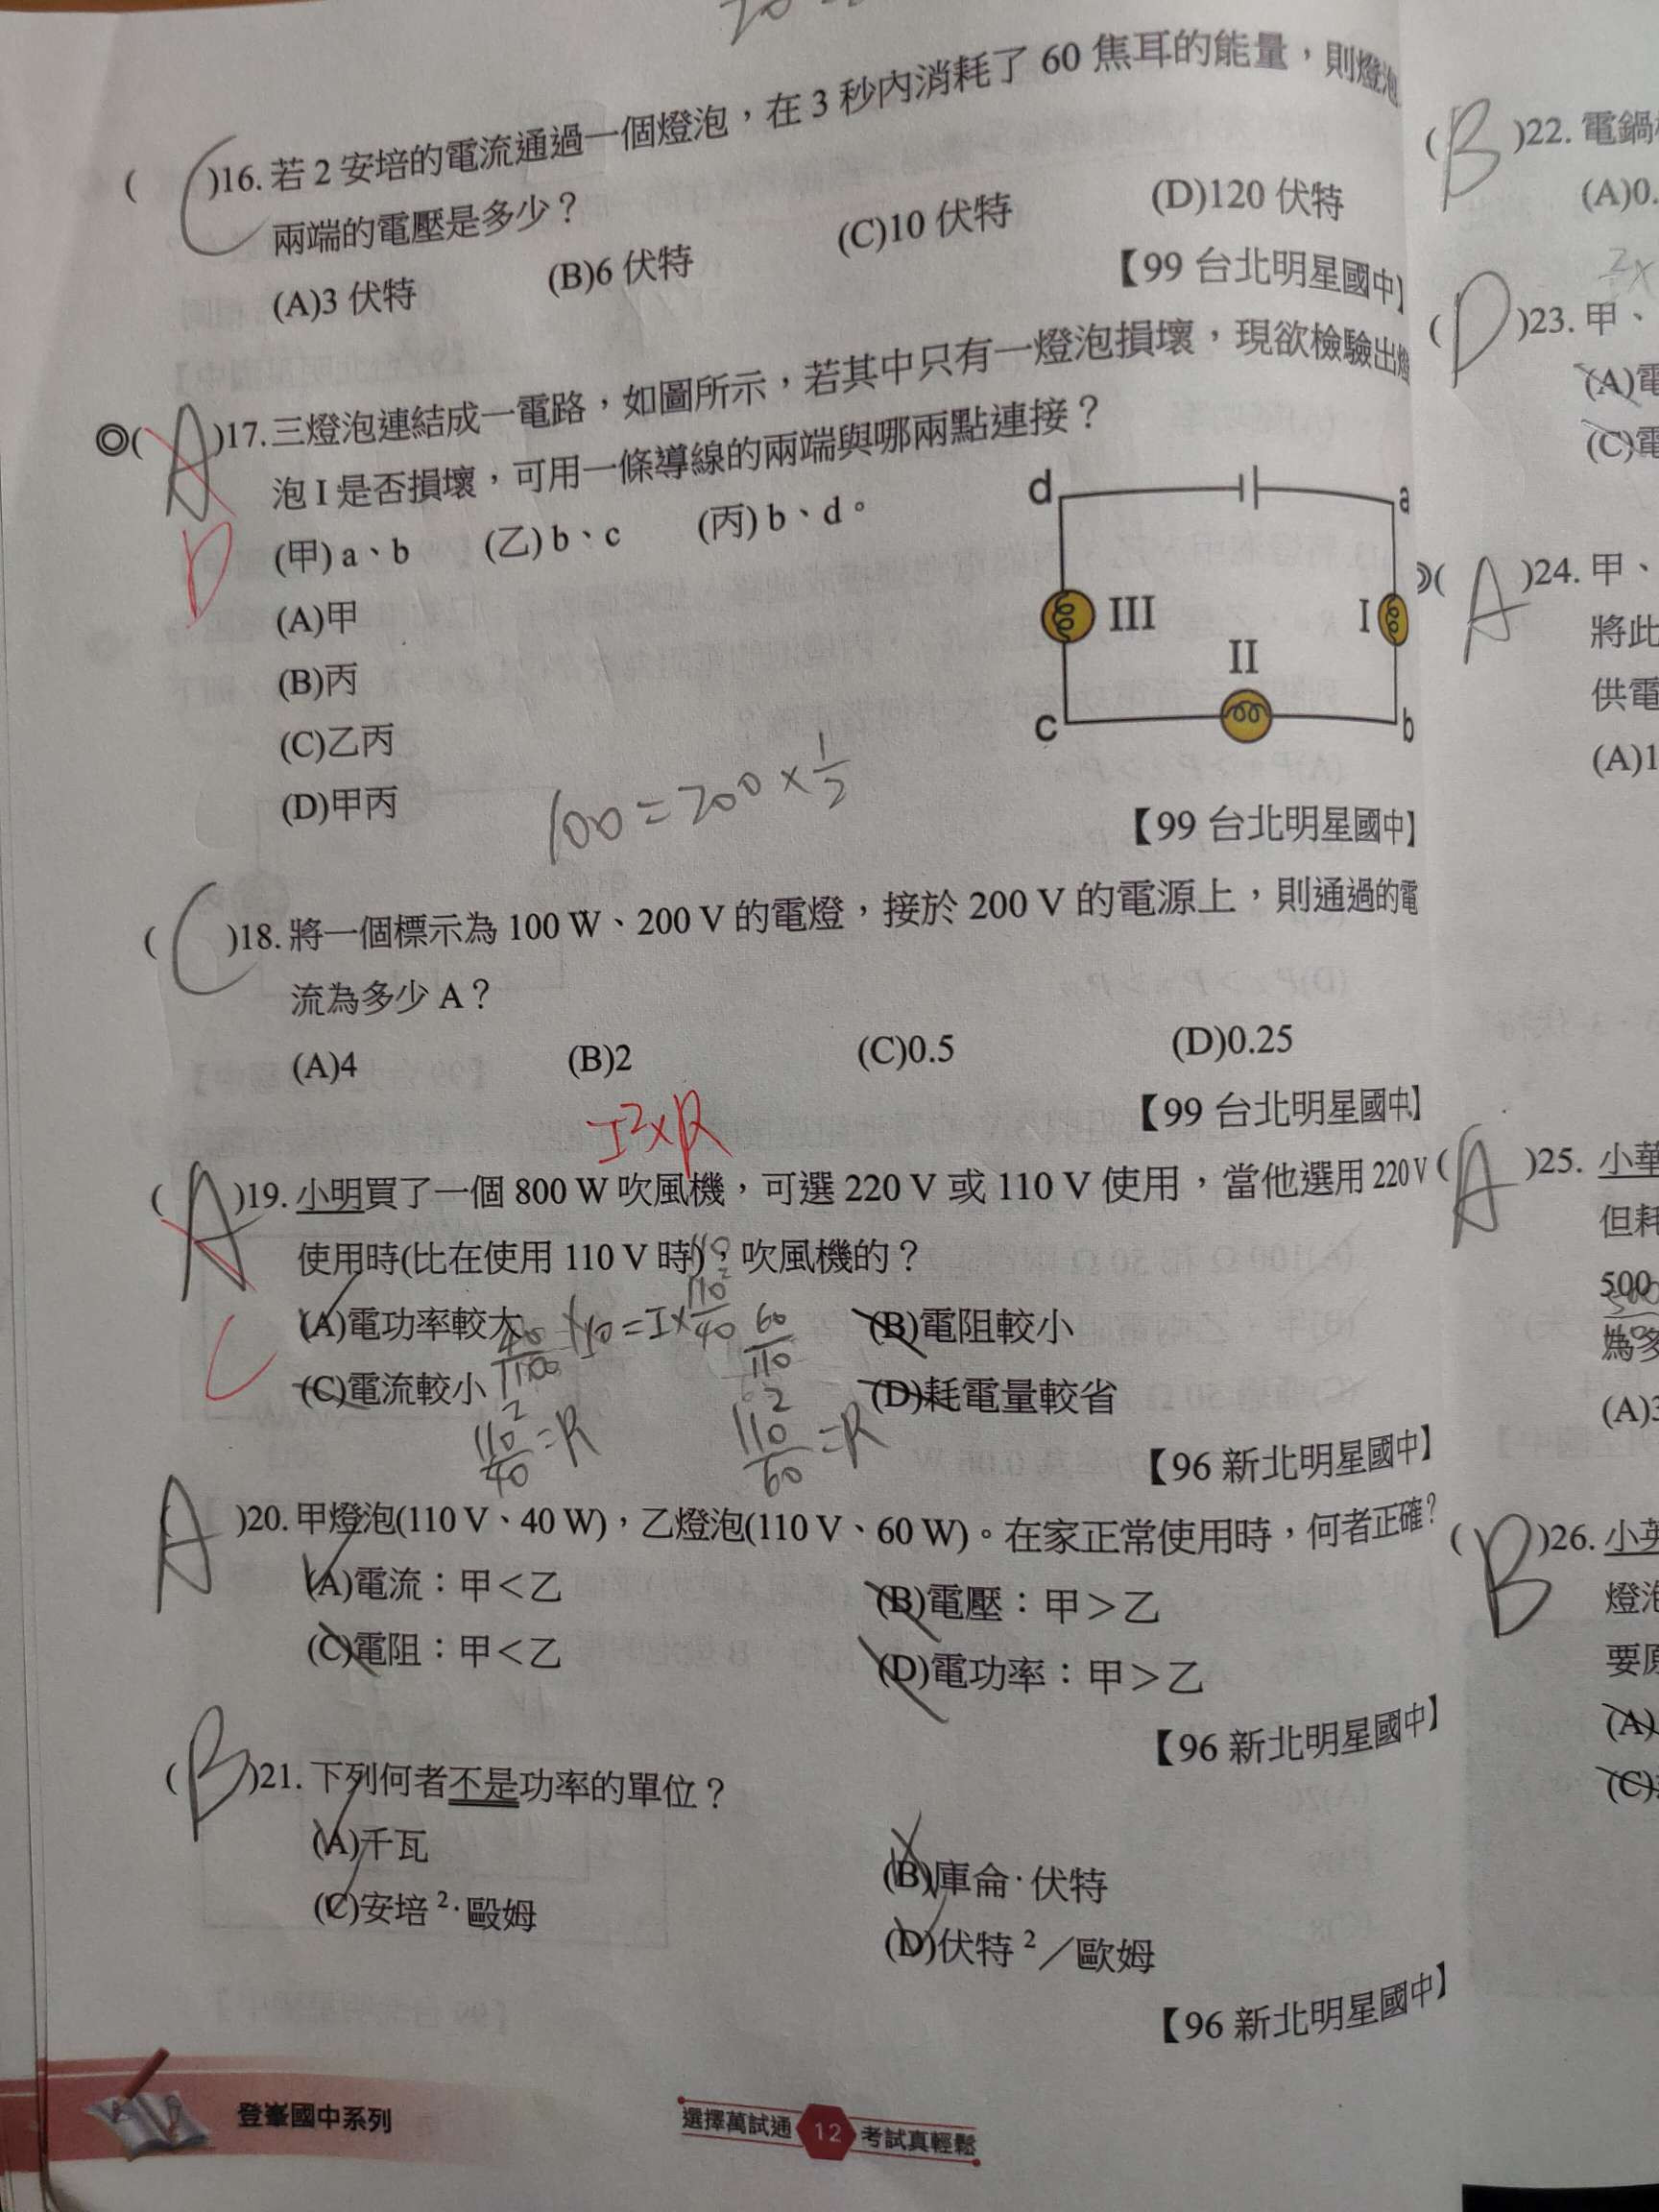 (C)16. 若 2 安培的電流通過一個燈泡，在 3 秒內消耗了 60 焦耳的能量，則燈泡
兩端的電壓是多少？
(A)3 伏特 (B)6 伏特 (C)10 伏特 (D)120 伏特
【99 台北明星國中】
◎(A)17. 三燈泡連結成一電路，如圖所示，若其中只有一燈泡損壞，現欲檢驗出燈
D
泡 I 是否損壞，可用一條導線的兩端與哪兩點連接？
(甲) a、b (乙) b、c (丙) b、d。
(A)甲
(B)丙
(C)乙丙
(D)甲丙
d a
III I
II
c b
100=200×1/2
【99 台北明星國中】
(C)18. 將一個標示為 100 W、200 V 的電燈，接於 200 V 的電源上，則通過的電
流為多少 A？
(A)4 (B)2 (C)0.5 (D)0.25
【99 台北明星國中】
I²×R
(A)19. 小明買了一個 800 W 吹風機，可選 220 V 或 110 V 使用，當他選用 220 V
C
使用時(比在使用 110 V 時)，吹風機的？
(A)電功率較大 (B)電阻較小
(C)電流較小 (D)耗電量較省
110=I×110²/40
60/110
110²/40=R
110²/60=R
【96 新北明星國中】
(A)20. 甲燈泡(110 V、40 W)，乙燈泡(110 V、60 W)。在家正常使用時，何者正確？
(A)電流：甲＜乙 (B)電壓：甲＞乙
(C)電阻：甲＜乙 (D)電功率：甲＞乙
【96 新北明星國中】
(B)21. 下列何者不是功率的單位？
(A)千瓦 (B)庫侖·伏特
(C)安培²·毆姆 (D)伏特²／歐姆
【96 新北明星國中】
登峯國中系列
選擇萬試通 12 考試真輕鬆
(B)22. 電鍋
(A)0.
(D)23. 甲、
(A)電
(C)電
(A)24. 甲、
將此
供電
(A)1
(A)25. 小華
但耗
500
為多
(A)3
(B)26. 小英
燈泡
要原
(A)
(C)